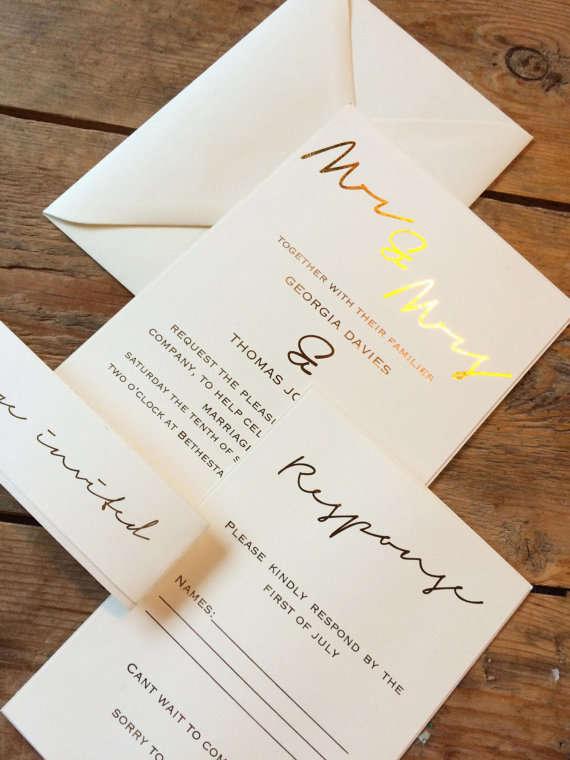 Mr
&
Mrs
TOGETHER WITH THEIR FAMILIER
GEORGIA DAVIES
&
THOMAS
REQUEST THE
COMPANY, TO HELP
SATURDAY THE TENTH OF
TWO O'CLOCK AT
invited
Response
PLEASE KINDLY RESPOND BY THE
FIRST OF JULY
NAMES:
CANT WAIT TO
SORRY TO